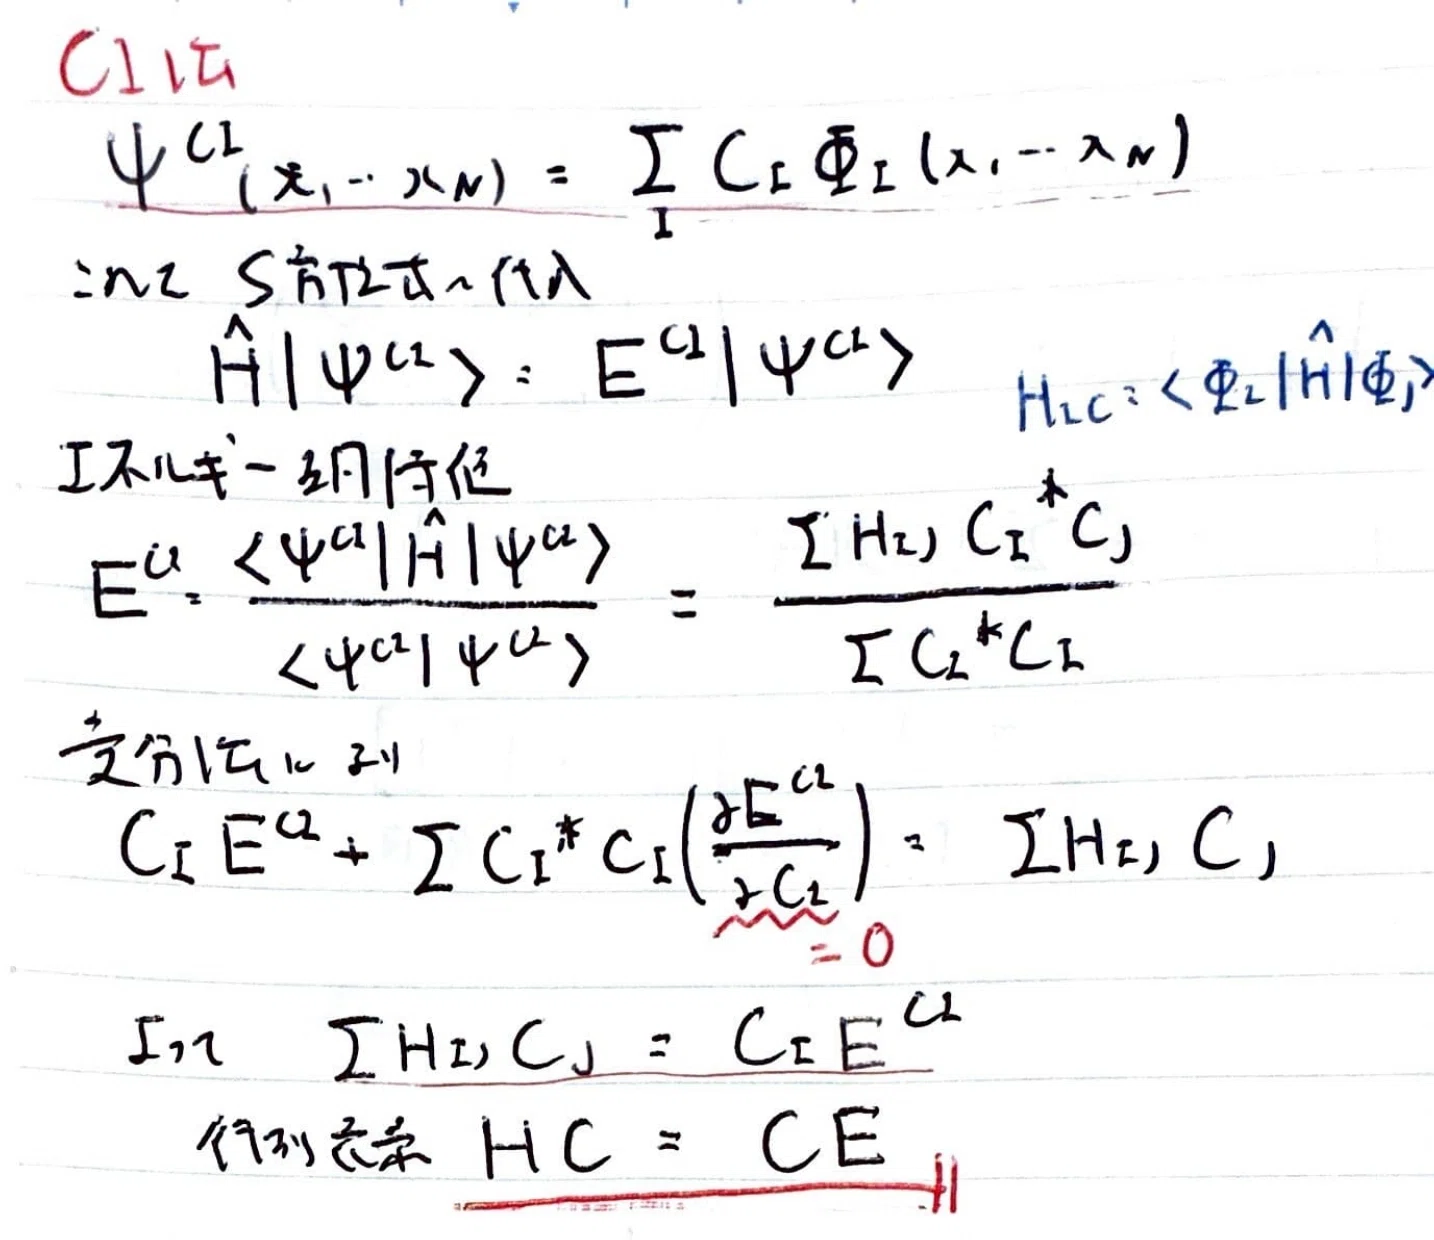 CI法
Ψ^CI (x₁ ⋯ x_N) = Σ_I C_I Φ_I (x₁ ⋯ x_N)
これを S方程式へ代入
Ĥ|Ψ^CI⟩ = E^CI|Ψ^CI⟩
H_IC = ⟨Φ_I|Ĥ|Φ_J⟩
エネルギー期待値
E^CI = ⟨Ψ^CI|Ĥ|Ψ^CI⟩ / ⟨Ψ^CI|Ψ^CI⟩ = ΣH_IJ C_I* C_J / ΣC_I* C_I
変分法により
C_I E^CI + ΣC_I* C_I (∂E^CI / ∂C_I) = ΣH_IJ C_J
= 0
よって ΣH_IJ C_J = C_I E^CI
行列表示 HC = CE